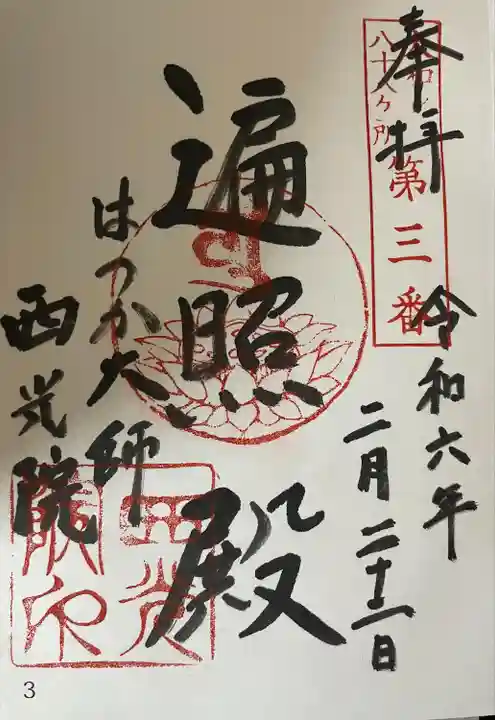 奉拝
八十八ヶ所
第三番
令和六年
二月二十二日
遍照殿
はつか大師
西光院
3